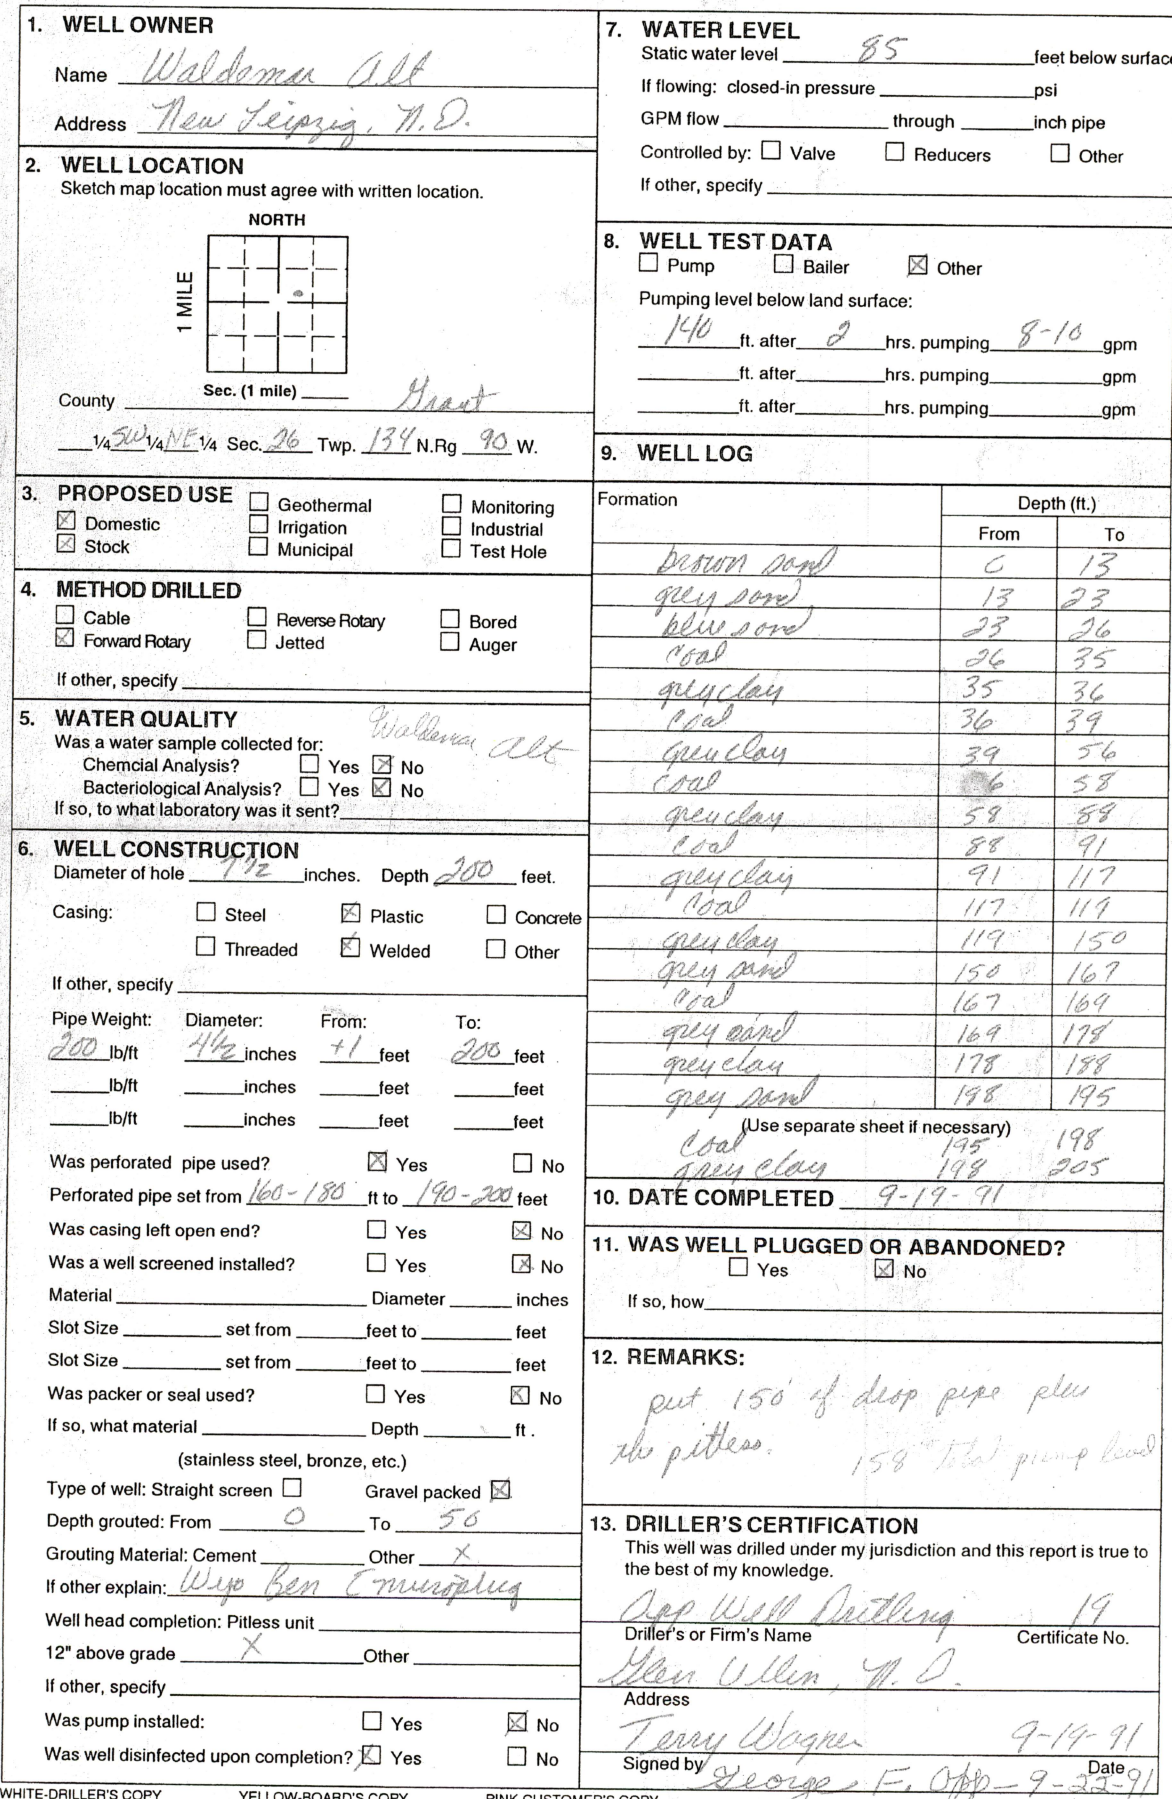 1. WELL OWNER
Name Waldemar Alt
Address New Leipzig, N.D.
2. WELL LOCATION
Sketch map location must agree with written location.
NORTH
1 MILE
Sec. (1 mile)
County Grant
1/4 SW 1/4 NE 1/4 Sec. 26 Twp. 134 N.Rg 90 W.
3. PROPOSED USE
Geothermal Monitoring
Domestic Irrigation Industrial
Stock Municipal Test Hole
4. METHOD DRILLED
Cable Reverse Rotary Bored
Forward Rotary Jetted Auger
If other, specify
5. WATER QUALITY
Waldemar Alt
Was a water sample collected for:
Chemcial Analysis? Yes No
Bacteriological Analysis? Yes No
If so, to what laboratory was it sent?
6. WELL CONSTRUCTION
Diameter of hole 7 1/2 inches. Depth 200 feet.
Casing: Steel Plastic Concrete
Threaded Welded Other
If other, specify
Pipe Weight: Diameter: From: To:
200 lb/ft 4 1/2 inches +1 feet 200 feet
lb/ft inches feet feet
lb/ft inches feet feet
Was perforated pipe used? Yes No
Perforated pipe set from 160-180 ft to 190-200 feet
Was casing left open end? Yes No
Was a well screened installed? Yes No
Material Diameter inches
Slot Size set from feet to feet
Slot Size set from feet to feet
Was packer or seal used? Yes No
If so, what material Depth ft.
(stainless steel, bronze, etc.)
Type of well: Straight screen Gravel packed
Depth grouted: From 0 To 50
Grouting Material: Cement Other X
If other explain: Wyo Ben Enviroplug
Well head completion: Pitless unit
12" above grade X Other
If other, specify
Was pump installed: Yes No
Was well disinfected upon completion? Yes No
WHITE-DRILLER'S COPY YELLOW-BOARD'S COPY PINK-CUSTOMER'S COPY
7. WATER LEVEL
Static water level 85 feet below surface
If flowing: closed-in pressure psi
GPM flow through inch pipe
Controlled by: Valve Reducers Other
If other, specify
8. WELL TEST DATA
Pump Bailer Other
Pumping level below land surface:
140 ft. after 2 hrs. pumping 8-10 gpm
ft. after hrs. pumping gpm
ft. after hrs. pumping gpm
9. WELL LOG
Formation Depth (ft.)
From To
brown sand 0 13
grey sand 13 23
blue sand 23 26
coal 26 35
grey clay 35 36
coal 36 39
grey clay 39 56
coal 6 58
grey clay 58 88
coal 88 91
grey clay 91 117
coal 117 119
grey clay 119 150
grey sand 150 167
coal 167 169
grey sand 169 178
grey clay 178 188
grey sand 198 195
(Use separate sheet if necessary)
coal 195 198
grey clay 198 205
10. DATE COMPLETED 9-19-91
11. WAS WELL PLUGGED OR ABANDONED?
Yes No
If so, how
12. REMARKS:
put 150' of drop pipe plus
pitless.
158" total pump lead
13. DRILLER'S CERTIFICATION
This well was drilled under my jurisdiction and this report is true to
the best of my knowledge.
Opp Well Drilling 19
Driller's or Firm's Name Certificate No.
Glen Ullin, N.D.
Address
Terry Wagner 9-19-91
Signed by Date
George F. Opp - 9-22-91